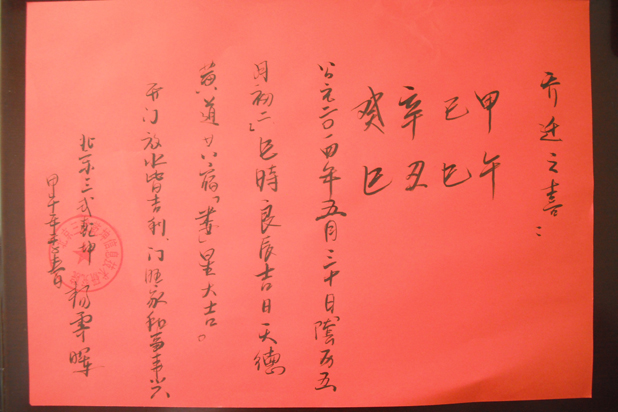 乔迁之喜：
甲午
己巳
辛丑
癸巳
公元二〇一四年五月三十日陰历五
月初二巳時良辰吉日天德
黄道廿八宿「娄」星大吉。
开门放水皆吉利、门旺家和万事兴
北京三式乾坤 杨晖
甲午年春